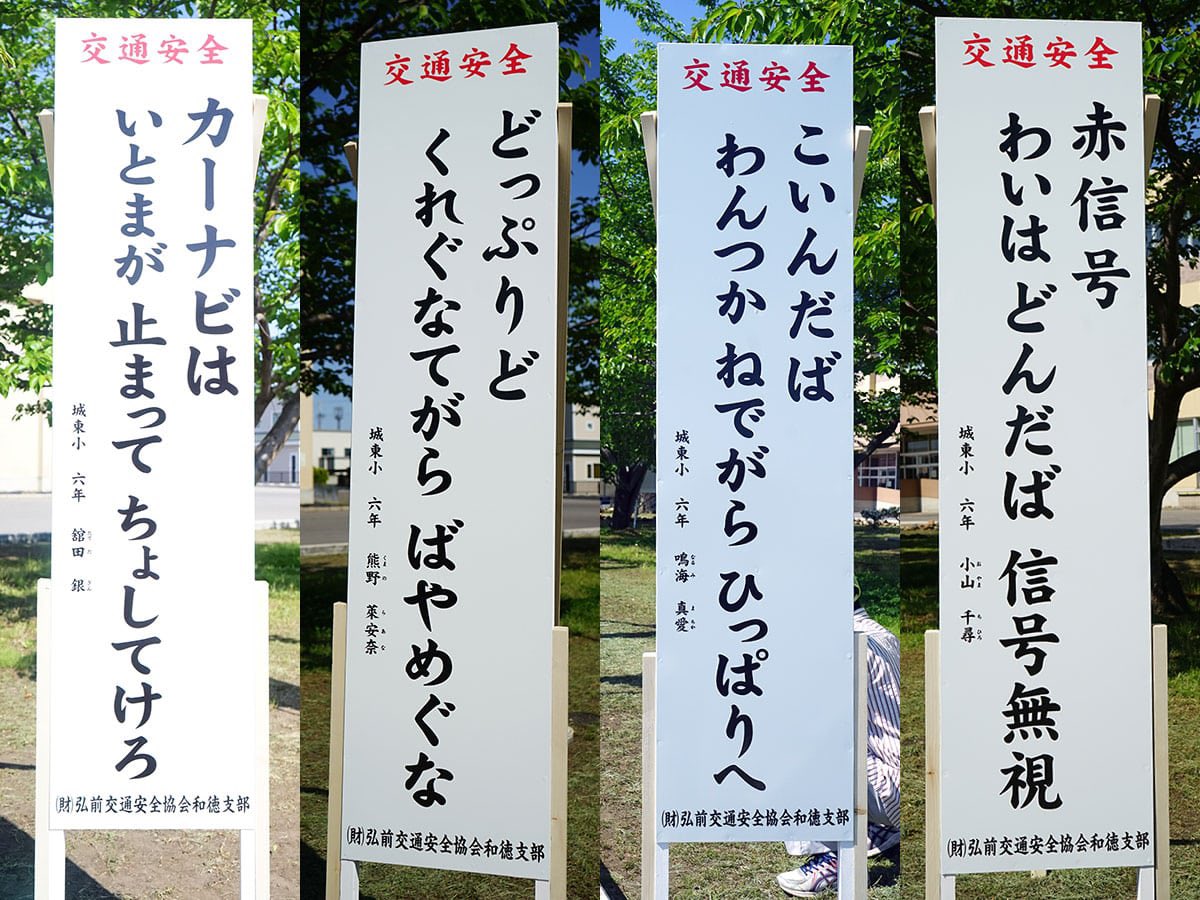 交通安全
カーナビは
いとまが 止まって ちょしてけろ
城東小 六年 舘田 銀
(財)弘前交通安全協会和徳支部
交通安全
どっぷりど
くれぐなてがら ばやめぐな
城東小 六年 熊野 萊安奈
(財)弘前交通安全協会和徳支部
交通安全
こいんだば
わんつか ねでがら ひっぱりへ
城東小 六年 鳴海 真愛
(財)弘前交通安全協会和徳支部
交通安全
赤信号
わいは どんだば 信号無視
城東小 六年 小山 千尋
(財)弘前交通安全協会和徳支部